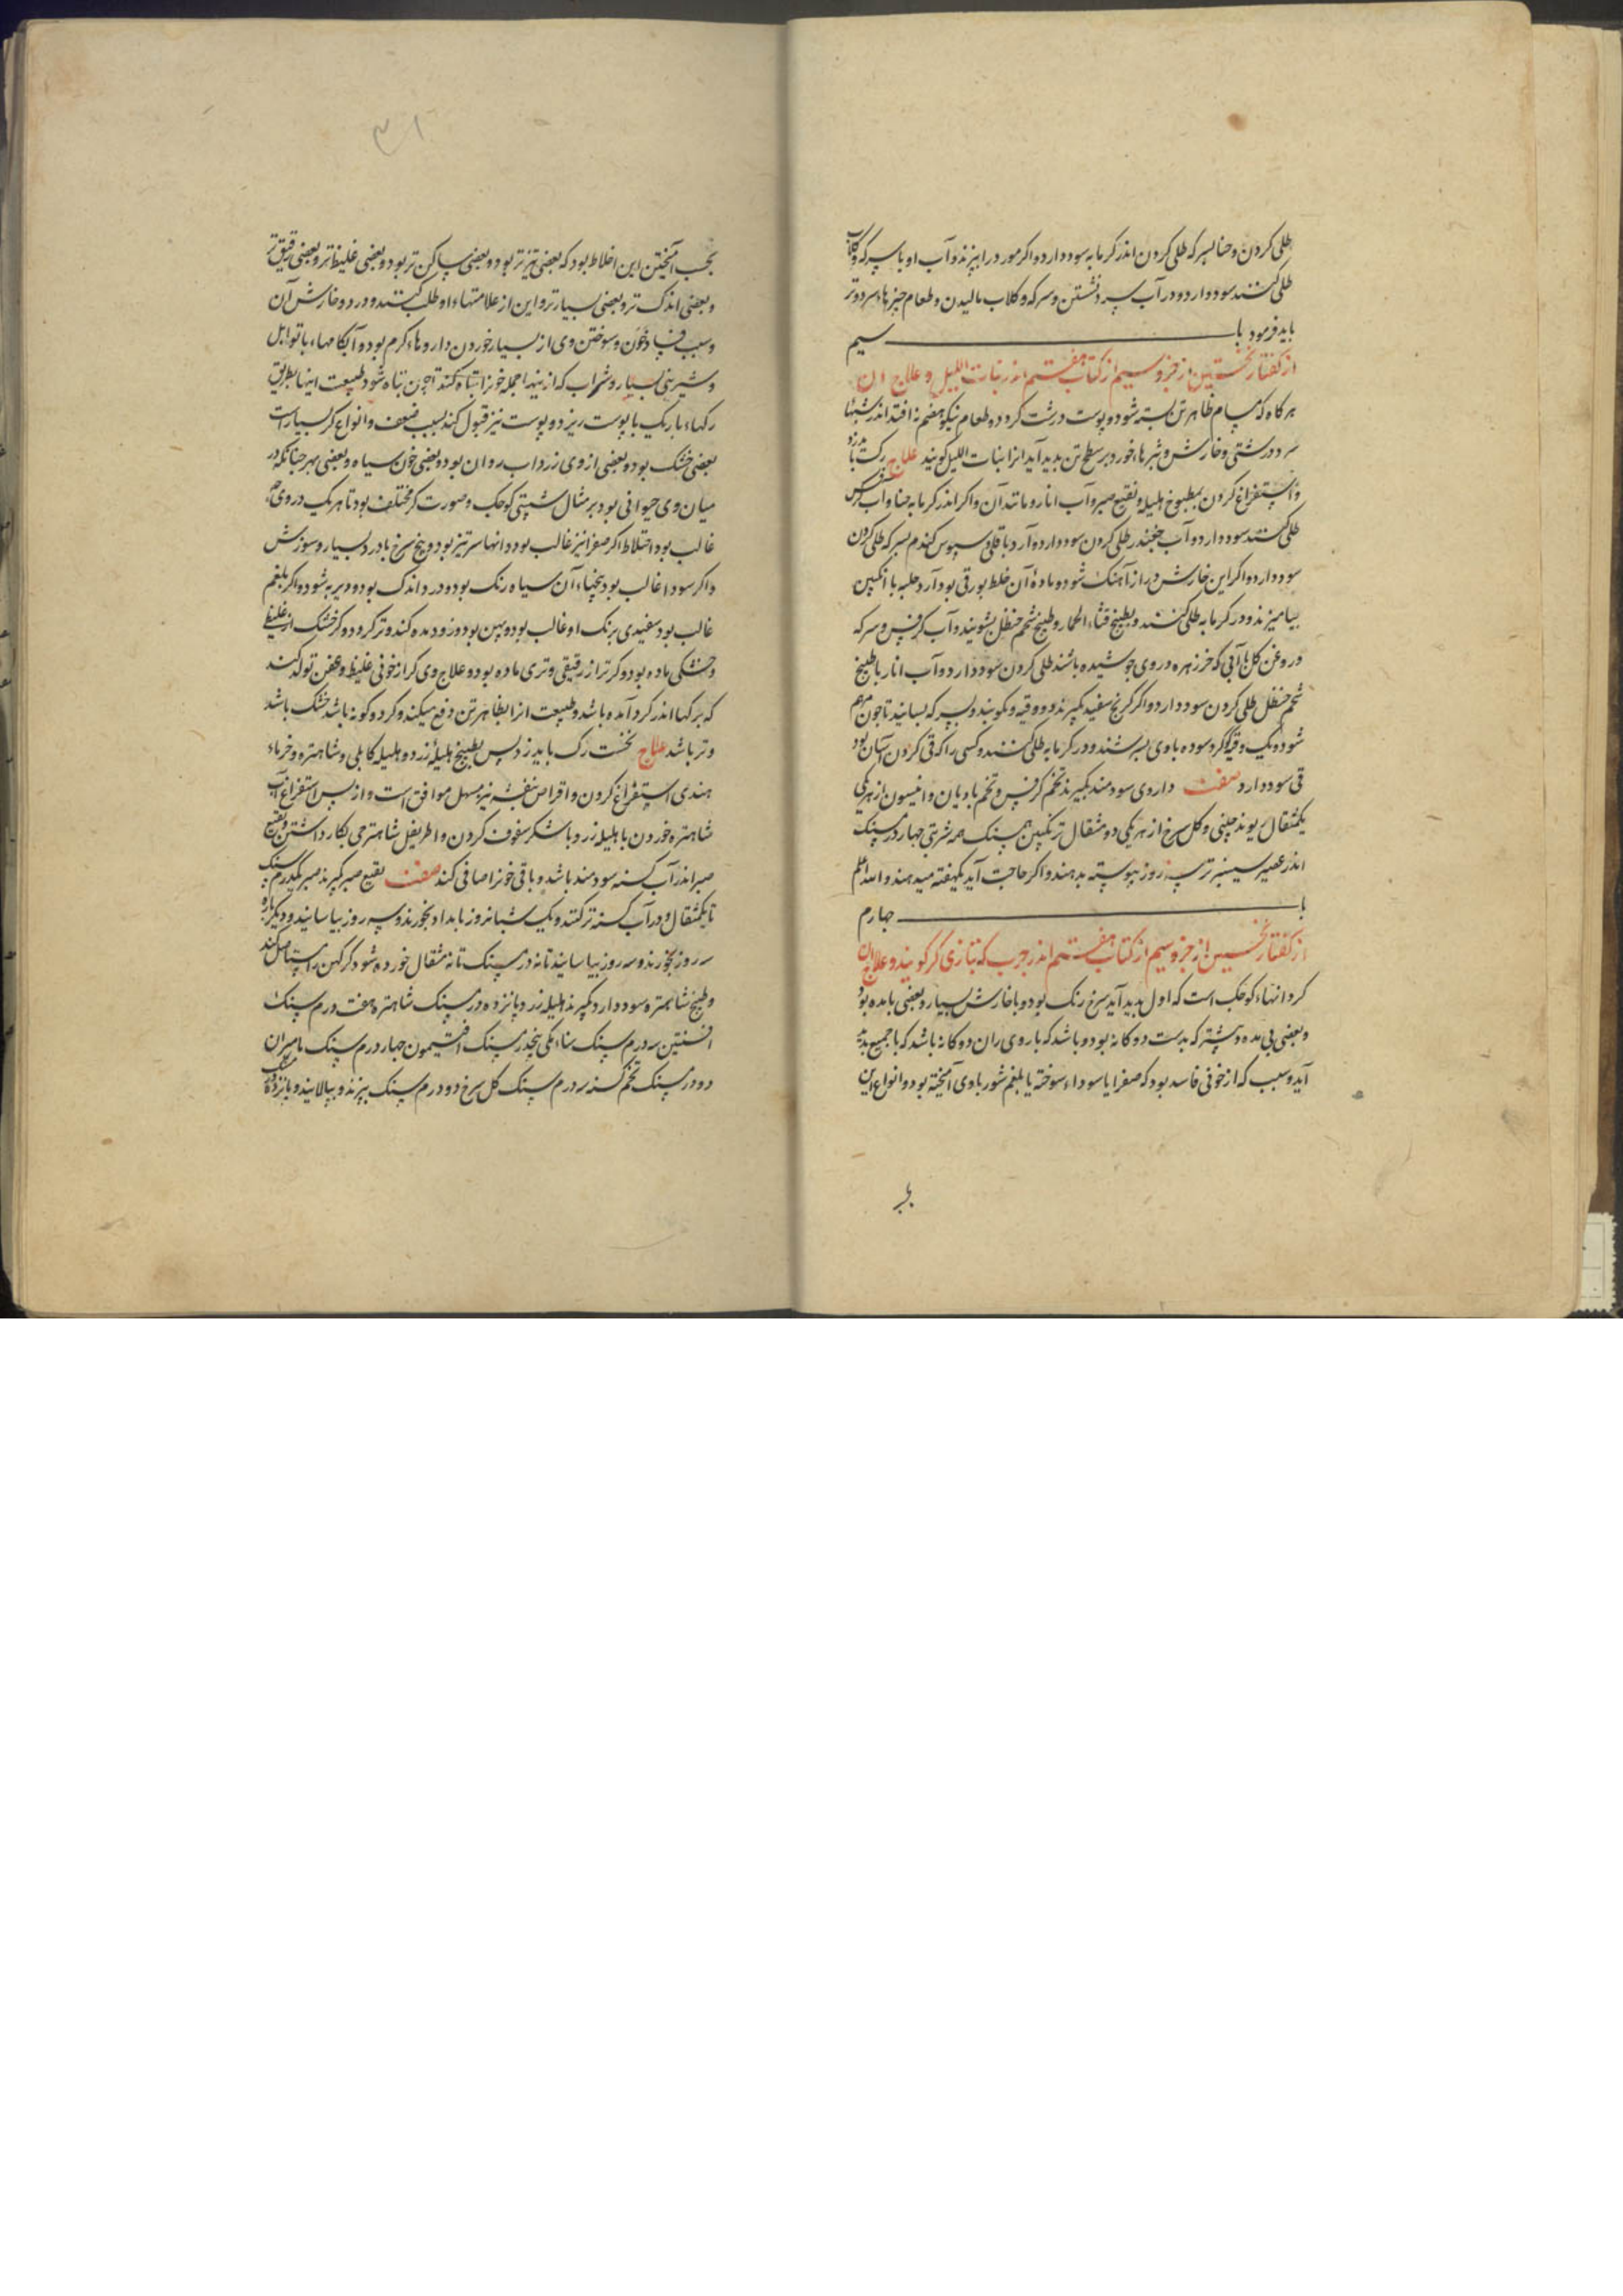 طلی کردن و حنا بسرکه طلی کردن اندر کرمابه سود دارد و اکر مورد را بپزند و آب او با سرکه و کلاب
طلی کنند سود دارد و در آب سرد نشستن و سرکه و کلاب مالیدن و طعام چیزهاء سرد و تر
باید فرمود باب سیم
از کفتار نخستین از جزو سیم از کتاب هفتم اندر بنات اللیل و علاج ان
هرکاه که مسام ظاهر تن بسته شود و پوست درشت کردد و طعام نیکو هضم نه افتد اندر شبهاء
سرد درشتی و خارش و بثرهاء خورد بر سطح تن بدید آید انرا بنات اللیل کویند علاج رک باید زد
و استفراغ کردن بمطبوخ هلیله و نقیع صبر و آب انار و مانند آن و اکر اندر کرمابه حنا و اب کرفس
طلی کنند سود دارد و آب چغندر طلی کردن سود دارد و آرد باقلی و سبوس کندم بسرکه طلی کردن
سود دارد و اکر این خارش دراز آهنک شود و ماده آن خلط بورقی بود آرد حلبه با انکبین
بیامیزند و در کرمابه طلی کنند و بطبیخ قثاء الحمار و طبیخ شحم حنظل بشویند و آب کرفس و سرکه
و روغن کل با آبی که خرزهره در وی جوشیده باشند طلی کردن سود دارد و آب انار با طبیخ
شحم حنظل طلی کردن سود دارد و اکر کرنج سفید بکیرند دو وقیه و بکوبند و بسرکه بسایند تا جون مرهم
شود و یک وقیه کوکرد سوده با وی بسرشند و در کرمابه طلی کنند و کسی را که قی کردن آسان بود
قی سود دارد صفت داروی سودمند بکیرند تخم کرفس و تخم بادیان و انیسون از هر یکی
یکمثقال ریوند چینی و کل سرخ از هر یکی دو مثقال ترنکبین همسنک همه شربتی چهار درمسنک
اندر عصیر سیسنبر تر سه روز پیوسته بدهند و اکر حاجت آید یکهفته میدهند و الله اعلم
باب جهارم
از کفتار نخستین از جزو سیم از کتاب هفتم اندر جرب که بتازی کر کویند و علاج ان
کر دانهاء کوچک است که اول بدید آید سرخ رنک بود و با خارش بسیار و بعضی با مده بود
و بعضی بی مده و بیشتر که بدست دوکانه بود و باشد که بار وی ران دوکانه باشد که با جمیع بدن
آید و سبب که از خونی فاسد بود که صفرا یا سوداء سوخته یا بلغم شور با وی آمیخته بود و انواع این
۳۱
بحسب آمیختن این اخلاط بود که بعضی تیزتر بود و بعضی ساکن تر بود و بعضی غلیظتر و بعضی رقیق تر
و بعضی اندک تر و بعضی بسیارتر و این از علامتهاء او طلب کنند و درد و خارش آن
و سبب فساد خون و سوختن وی از بسیار خوردن داروهاء کرم بود و آبکامهاء با توابل
و شیرینی بسیار و شراب که از بنید اجمله خون را تباه کند چون تباه شود طبیعت اینها بطریق
رکهاء باریک با پوست ریزد و پوست نیز قبول کند بسبب ضعف و انواع کر بسیار است
بعضی خشک بود و بعضی از وی زرداب روان بود و بعضی خون سیاه و بعضی بهر جنانکه در
میان وی حیوانی بود بر مثال شپشی کوچک و صورت کر مختلف بود تا هر یک در وی
غالب بود اختلاط اکر صفرا نیز غالب بود دانها سر تیز بود و بیخ سرخ با درد بسیار و سوزش
و اکر سودا غالب بود بیخهاء آن سیاه رنک بود و درد اندک بود و دیر به شود و اکر بلغم
غالب بود سفیدی برنک او غالب بود و پهن بود و زود مده کند و تر کردد و کر خشک از غلیظ
و خشکی ماده بود و کر تر از رقیقی و تری ماده بود و علاج وی کر از خونی غلیظ و عفن تولد کند
که بر کها اندر کرد آمده باشد و طبیعت انرا بظاهر تن دفع میکند و کر دو کونه باشد خشک باشد
و تر باشد علاج نخست رک باید زد پس بطبیخ هلیله زرد و هلیله کابلی و شاهتره و خرماء
هندی استفراغ کردن و اقراص بنفشه نیز مسهل موافق است و از پس استفراغ آب
شاهتره خوردن با هلیله زرد با شکر سفوف کردن و اطریفل شاهترجی بکار داشتن و نقیع
صبر اندر آب کسنه سودمند باشد و باقی خون را صافی کند صفت نقیع صبر بکیرند صبر یکدرم سنک
تا یکمثقال و در آب کسنه تر کنند و یک شبانروز بامداد بخورند و سه روز بیاسایند و دیکر باره
سه روز بخورند و سه روز بیاسایند تا نه درمسنک تا نه مثقال خورده شود کر کهن را مستاصل کند
و طبیخ شاهتره سود دارد بکیرند هلیله زرد پانزده درمسنک شاهتره هفت درم سنک
افسنتین سه درم سنک سناء مکی پنجدرمسنک افتیمون جهار درم سنک مامیران
دو درمسنک تخم کسنه سه درم سنک کل سرخ دو درم سنک بپزند و بپالایند و پانزده